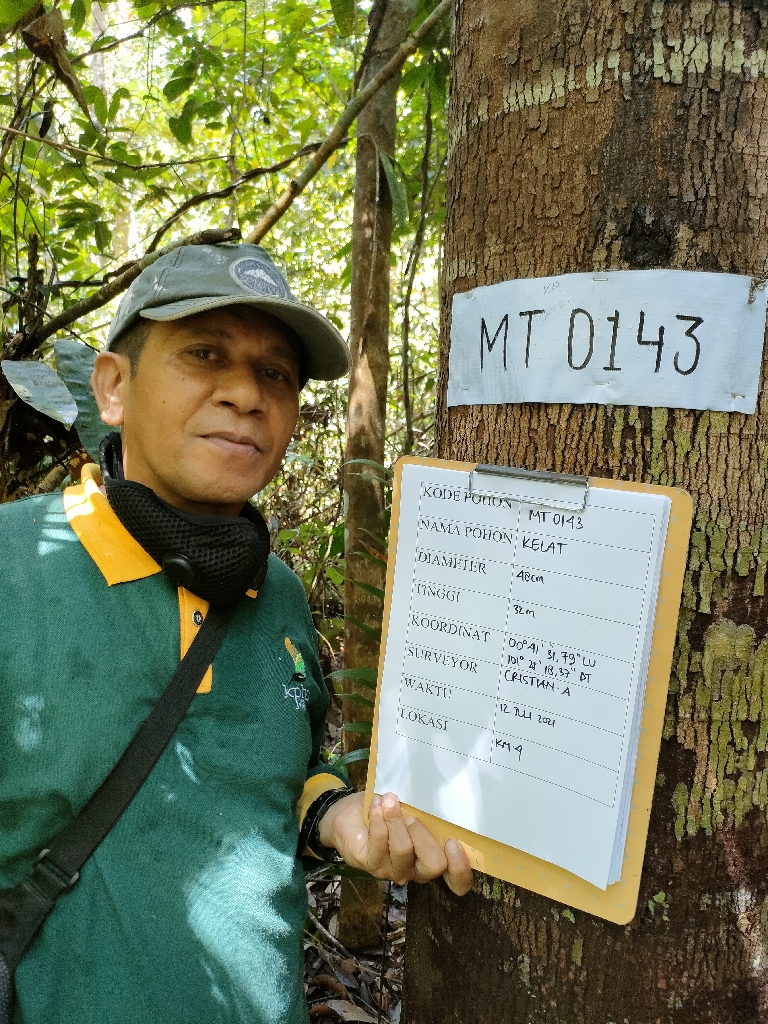 MT 0143
KODE POHON MT 0143
NAMA POHON KELAT
DIAMETER 48cm
TINGGI 32m
KOORDINAT 00° 41' 31,79" LU
101° 21' 18,37" BT
SURVEYOR CRISTIAN A
WAKTU 12 JULI 2021
LOKASI KM 4